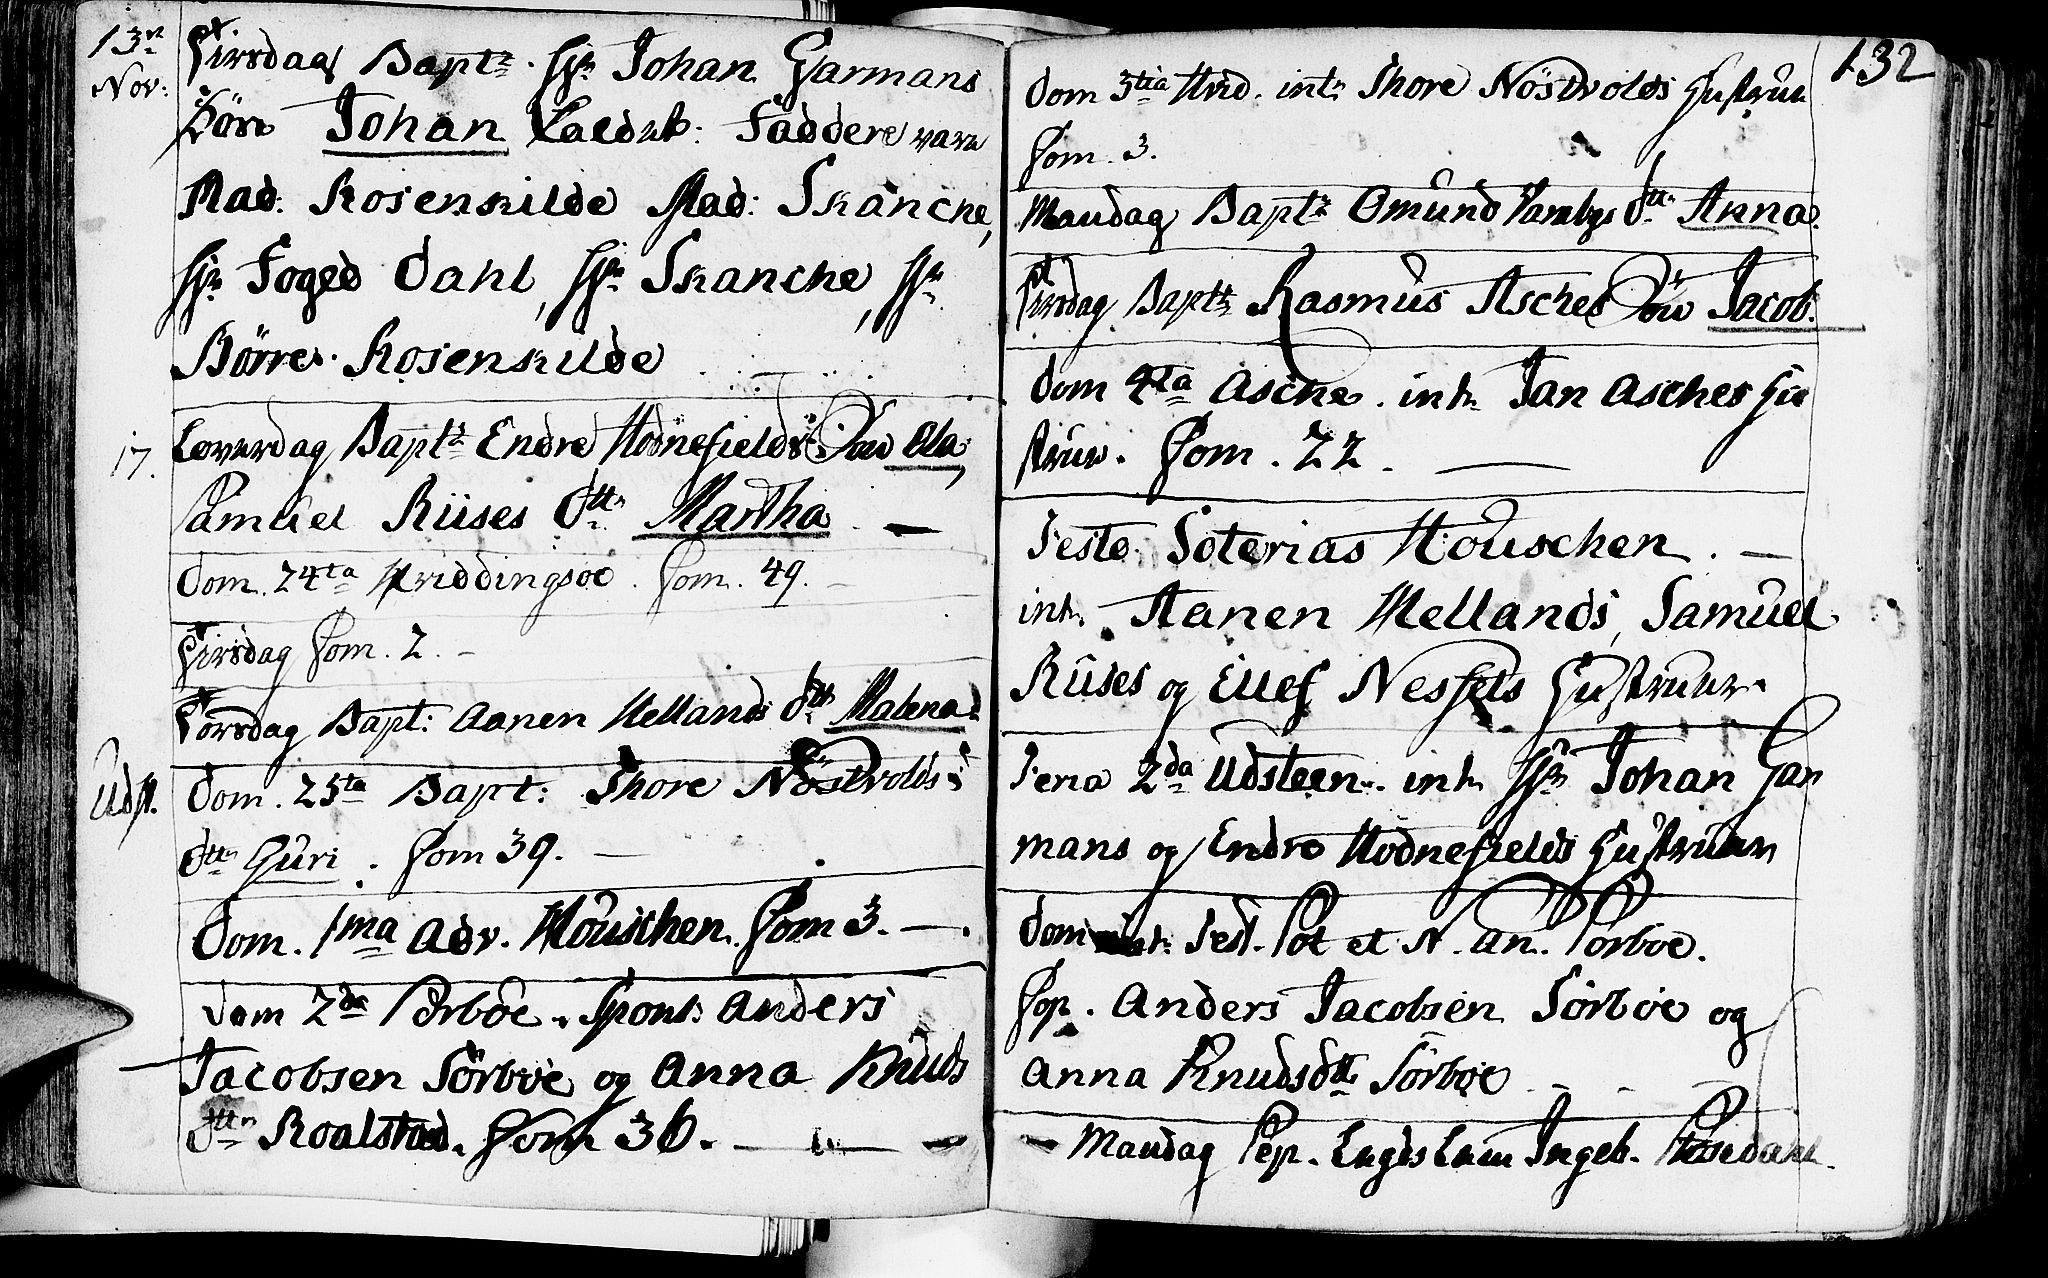 13de
Nov:
Tirsdag Bapt: Hr Johan Garmans
Börn Johan kaldet: Faddere vare
Mad: Rosenkilde Mad: Skancke,
Hr Foged Dahl, Hr Skancke, Hr
Börre Rosenkilde
17. Löverdag Bapt: Endre Hodnefields Sön Ola,
Samuel Riises dttr Martha —
Dom. 24ta Hviddingsöe. Com. 49. —
Tirsdag Com. 2. —
Torsdag Bapt: Aanen Hellands dttr Malena
Udst. Dom. 25ta Bapt: Thore Nöstvolds
dttr Guri. Com 39. —
Dom. 1ma Adv. Houschen. Com 3. —.
Dom 2da Sörböe. Spons: Anders
Jacobsen Sörböe og Anna Knuds
dttr Roalstad. Com 36. —
132
Dom 3tia Hvid. int: Thore Nöstvolds Hustrue
Com. 3.
Mandag Bapt: Omund dttr Anna.
Tirsdag Bapt: Rasmus Asches Sön Jacob.
Dom 4ta Asche. int: Jan Asches Hu
strue. Com. 22. —
Festo Soterias Houschen. —
int: Aanen Hellands, Samuel
Riises og Ellef Nessets Hustruer.
Feria 2da Udsteen. int: Hr Johan Gar
mans og Endre Hodnefields Hustruer
Dom int: Fest. Nat et N. An. Sörböe.
Cop. Anders Jacobsen Sörböe og
Anna Knudsdttr Sörböe - - -
— Mandag Sep. Ingeb.